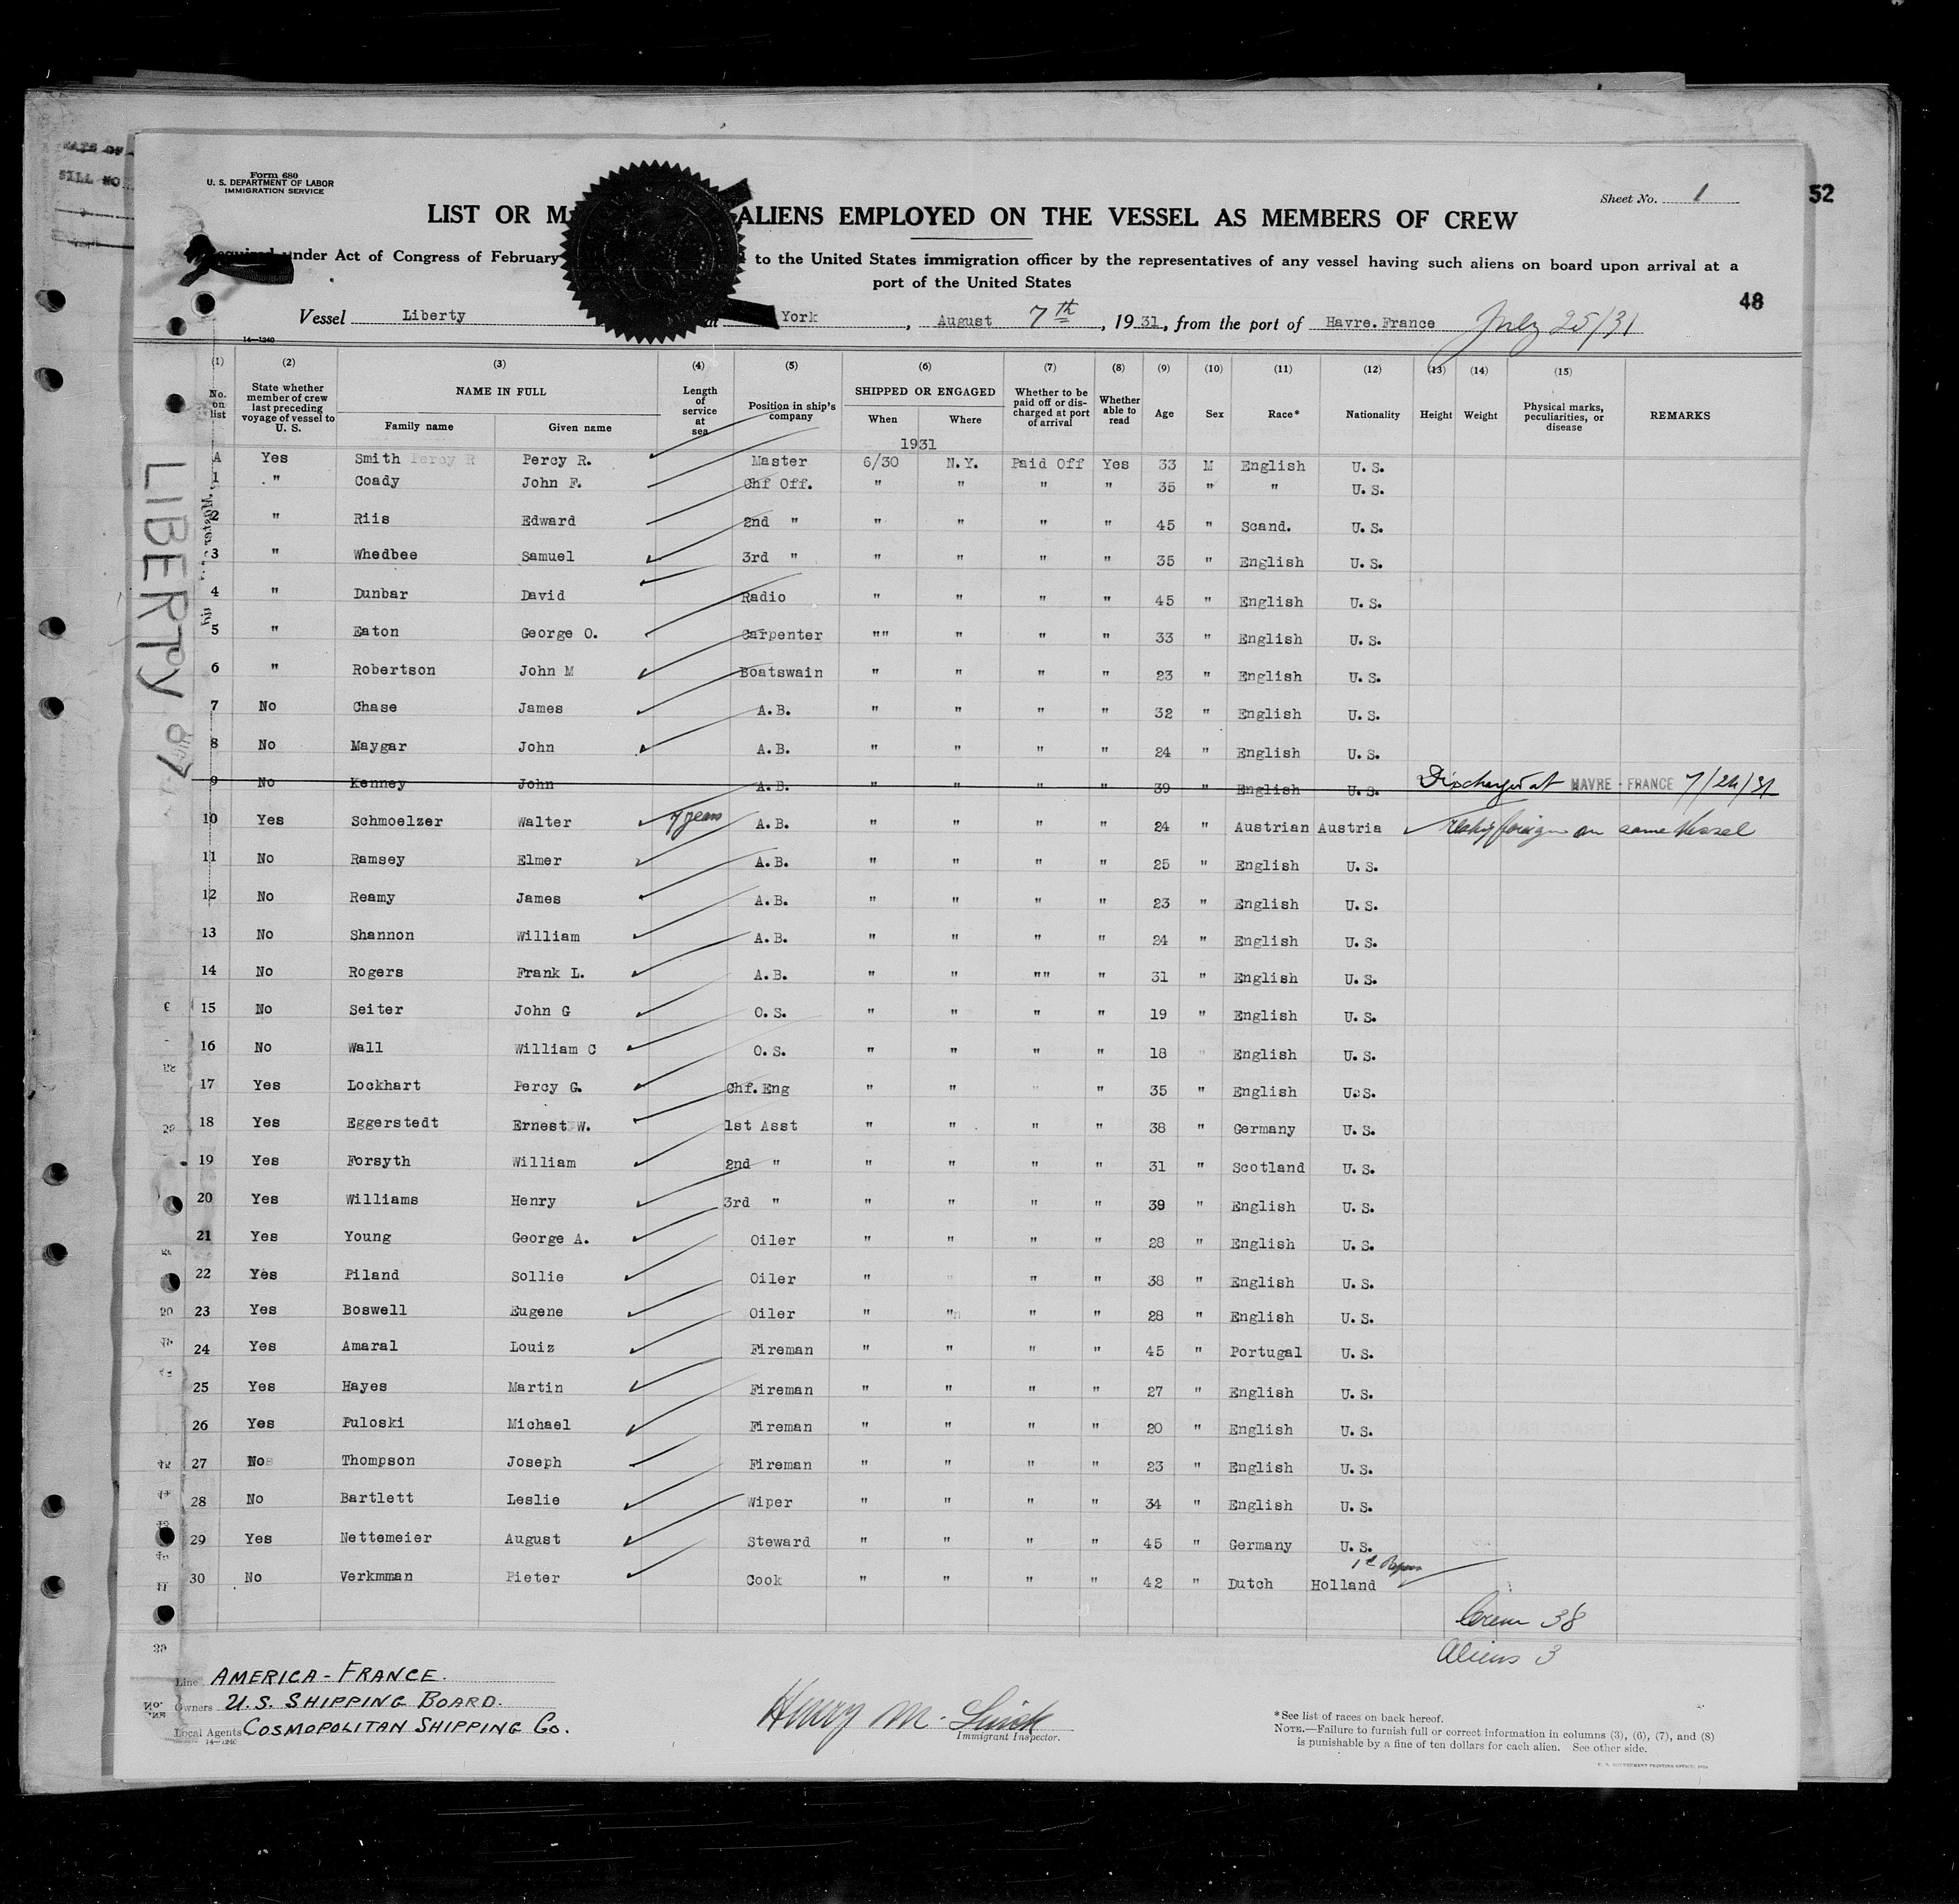 Form 680
U. S. DEPARTMENT OF LABOR
IMMIGRATION SERVICE
Sheet No. 1
52
LIST OR ALIENS EMPLOYED ON THE VESSEL AS MEMBERS OF CREW
under Act of Congress of February to the United States immigration officer by the representatives of any vessel having such aliens on board upon arrival at a
port of the United States
48
Vessel Liberty York, August 7th, 1931, from the port of Havre. France July 25/31
14—1240
(1) (2) (3) (4) (5) (6) (7) (8) (9) (10) (11) (12) (13) (14) (15)
No. on list State whether member of crew last preceding voyage of vessel to U. S. NAME IN FULL Length of service at sea Position in ship's company SHIPPED OR ENGAGED Whether to be paid off or discharged at port of arrival Whether able to read Age Sex Race* Nationality Height Weight Physical marks, peculiarities, or disease REMARKS
Family name Given name When Where
1931
A Yes Smith Percy R. Master 6/30 N.Y. Paid Off Yes 33 M English U. S.
1 " Coady John F. Chf Off. " " " " 35 " " U. S.
2 " Riis Edward 2nd " " " " " 45 " Scand. U. S.
3 " Whedbee Samuel 3rd " " " " " 35 " English U. S.
4 " Dunbar David Radio " " " " 45 " English U. S.
5 " Eaton George O. Carpenter "" " " " 33 " English U. S.
6 " Robertson John M Boatswain " " " " 23 " English U. S.
7 No Chase James A.B. " " " " 32 " English U. S.
8 No Maygar John A.B. " " " " 24 " English U. S.
9 No Kenney John A.B. " " " " 39 " English U. S. Discharged at HAVRE - FRANCE 7/24/31
10 Yes Schmoelzer Walter 7 years A.B. " " " " 24 " Austrian Austria reship foreign on same vessel
11 No Ramsey Elmer A.B. " " " " 25 " English U. S.
12 No Reamy James A.B. " " " " 23 " English U. S.
13 No Shannon William A.B. " " " " 24 " English U. S.
14 No Rogers Frank L. A.B. " " "" " 31 " English U. S.
15 No Seiter John G O.S. " " " " 19 " English U. S.
16 No Wall William C O.S. " " " " 18 " English U. S.
17 Yes Lockhart Percy G. Chf.Eng " " " " 35 " English U.S.
18 Yes Eggerstedt Ernest W. 1st Asst " " " " 38 " Germany U. S.
19 Yes Forsyth William 2nd " " " " " 31 " Scotland U. S.
20 Yes Williams Henry 3rd " " " " " 39 " English U. S.
21 Yes Young George A. Oiler " " " " 28 " English U. S.
22 Yes Piland Sollie Oiler " " " " 38 " English U. S.
23 Yes Boswell Eugene Oiler " " " " 28 " English U. S.
24 Yes Amaral Louiz Fireman " " " " 45 " Portugal U. S.
25 Yes Hayes Martin Fireman " " " " 27 " English U. S.
26 Yes Puloski Michael Fireman " " " " 20 " English U. S.
27 No Thompson Joseph Fireman " " " " 23 " English U. S.
28 No Bartlett Leslie Wiper " " " " 34 " English U. S.
29 Yes Nettemeier August Steward " " " " 45 " Germany U. S.
30 No Verkmman Pieter Cook " " " " 42 " Dutch Holland
Crew 38
Aliens 3
LIBERTY
Line AMERICA - FRANCE.
Owners U.S. SHIPPING BOARD.
Local Agents COSMOPOLITAN SHIPPING Co.
14—1240
Henry M.
Immigrant Inspector.
*See list of races on back hereof.
NOTE.—Failure to furnish full or correct information in columns (3), (6), (7), and (8)
is punishable by a fine of ten dollars for each alien. See other side.